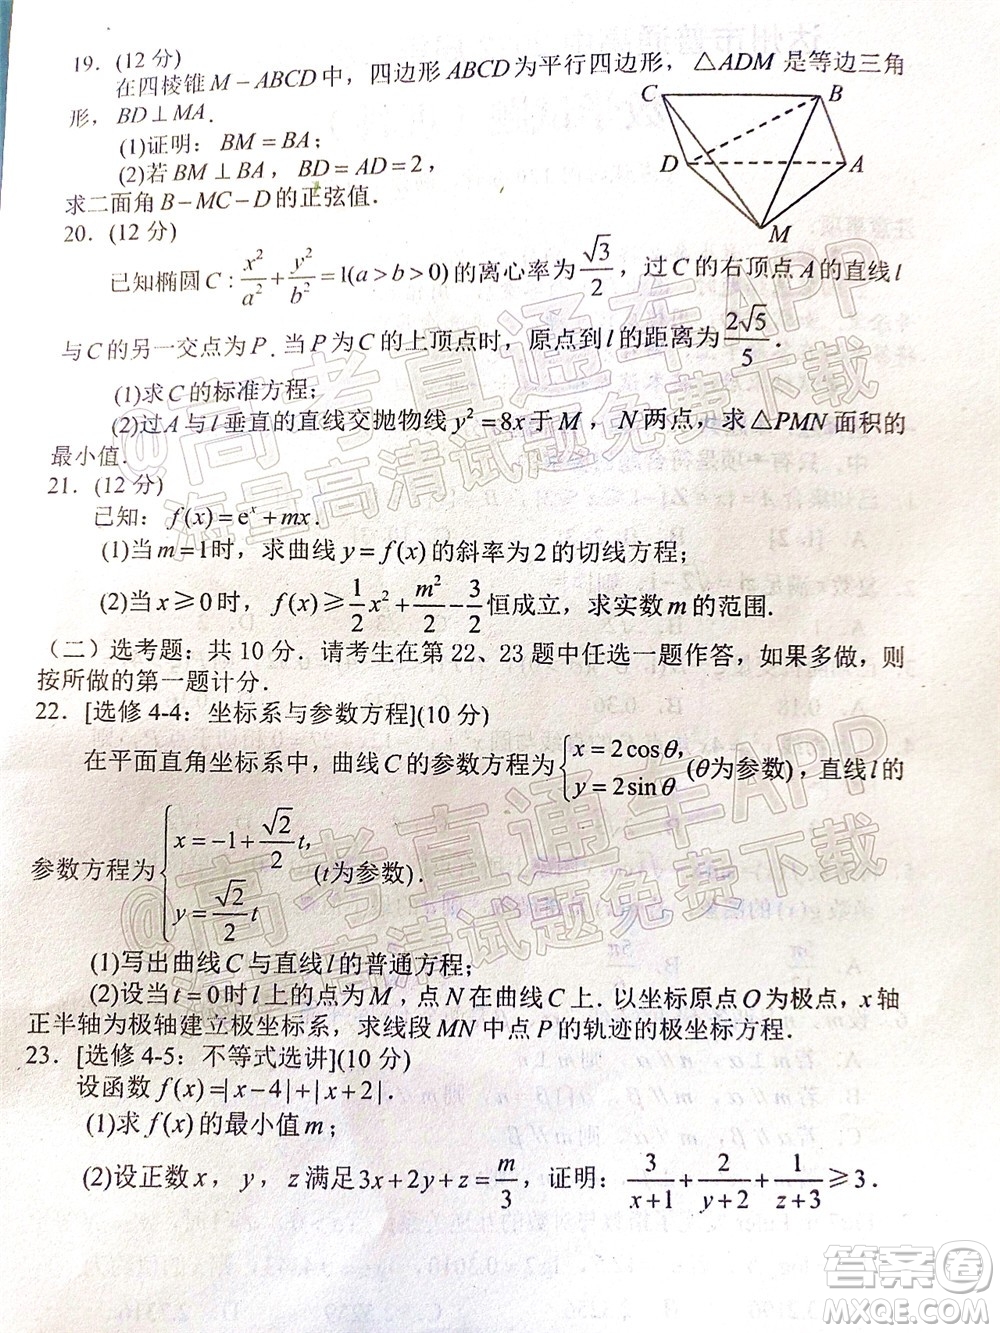 19．(12 分)
在四棱锥 M－ABCD 中，四边形 ABCD 为平行四边形，△ADM 是等边三角
形，BD⊥MA．
(1)证明：BM＝BA；
(2)若 BM⊥BA，BD＝AD＝2，
求二面角 B－MC－D 的正弦值．
C B D A M
20．(12 分)
已知椭圆 C：x²/a²＋y²/b²＝1(a＞b＞0)的离心率为 √3/2，过 C 的右顶点 A 的直线 l
与 C 的另一交点为 P．当 P 为 C 的上顶点时，原点到 l 的距离为 2√5/5．
(1)求 C 的标准方程；
(2)过 A 与 l 垂直的直线交抛物线 y²＝8x 于 M，N 两点，求 △PMN 面积的
最小值．
21．(12 分)
已知：f(x)＝eˣ＋mx．
(1)当 m＝1时，求曲线 y＝f(x) 的斜率为 2 的切线方程；
(2)当 x⩾0 时，f(x)⩾1/2 x²＋m²/2－3/2 恒成立，求实数 m 的范围．
（二）选考题：共 10 分．请考生在第 22、23 题中任选一题作答，如果多做，则
按所做的第一题计分．
22．[选修 4-4：坐标系与参数方程](10 分)
在平面直角坐标系中，曲线 C 的参数方程为 {x＝2cosθ，y＝2sinθ (θ为参数)，直线 l 的
参数方程为 {x＝－1＋√2/2 t，y＝√2/2 t (t为参数)．
(1)写出曲线 C 与直线 l 的普通方程；
(2)设当 t＝0时 l 上的点为 M，点 N 在曲线 C 上．以坐标原点 O 为极点，x 轴
正半轴为极轴建立极坐标系，求线段 MN 中点 P 的轨迹的极坐标方程．
23．[选修 4-5：不等式选讲](10 分)
设函数 f(x)＝|x－4|＋|x＋2|．
(1)求 f(x) 的最小值 m；
(2)设正数 x，y，z 满足 3x＋2y＋z＝m/3，证明：3/(x＋1)＋2/(y＋2)＋1/(z＋3)⩾3．
@高考直通车APP
海量高清试题免费下载
@高考直通车APP
海量高清试题免费下载
答案卷
MXQE.COM